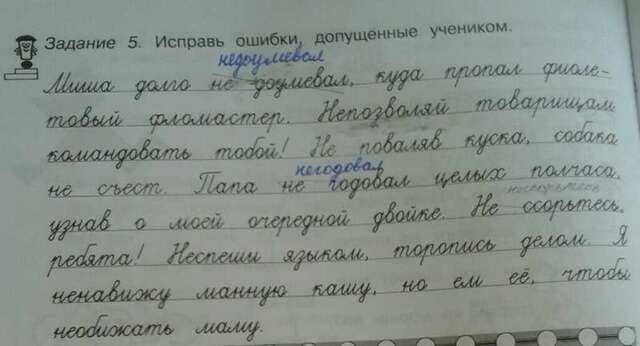 Задание 5. Исправь ошибки, допущенные учеником.
недоумевал
Миша долго не доумевал, куда пропал фиоле-
товый фломастер. Непозволяй товарищам
командовать тобой! Не поваляв куска, собака
негодовал
не съест. Папа не годовал целых полчаса,
узнав о моей очередной двойке. Не ссорьтесь,
ребята! Неспеши языком, торопись делом. Я
ненавижу манную кашу, но ем её, чтобы
необижать маму.